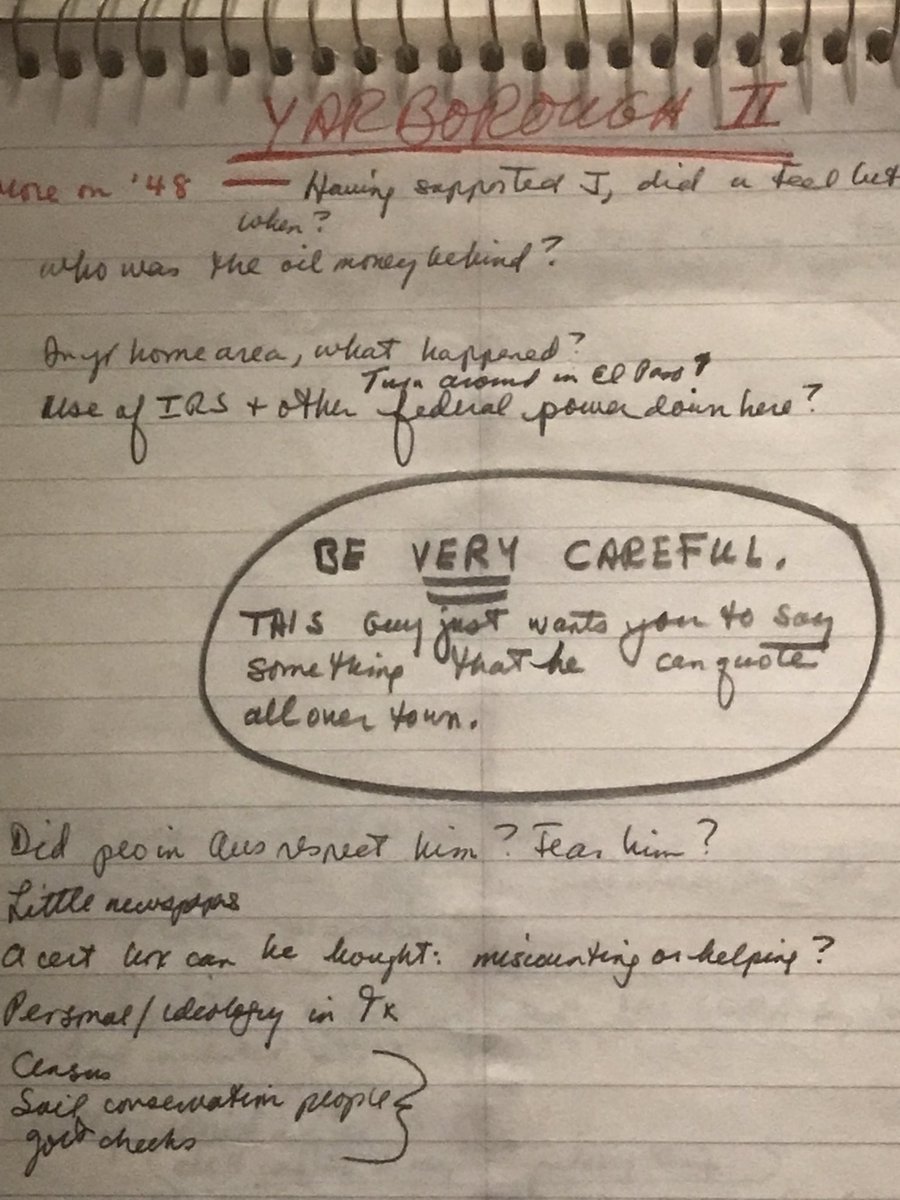 YARBOROUGH II
more on '48 — Having supported J, did u feel
when?
who was the oil money behind?
In yr home area, what happened?
Turn around in El Paso?
Use of IRS + other federal power down here?
BE VERY CAREFUL.
THIS Guy just wants you to say
something that he can quote
all over town.
Did peo in Aus respect him? Fear him?
Little newspapers
A cert box can be bought: miscounting or helping?
Personal/ideology in Tx
Census
Soil conservation people
govt checks